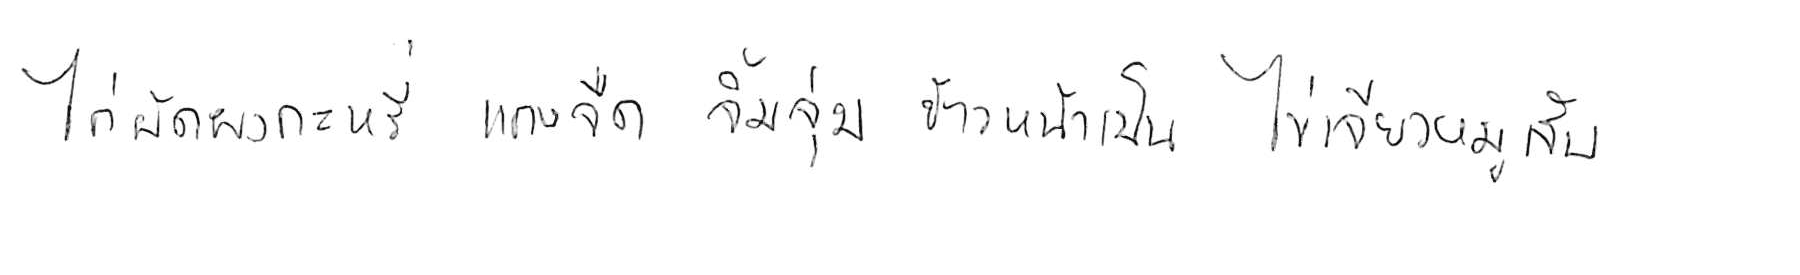 ไก่ผัดผงกะหรี่ แกงจืด จิ้มจุ่ม ข้าวหน้าเป็น ไข่เจียวหมูสับ